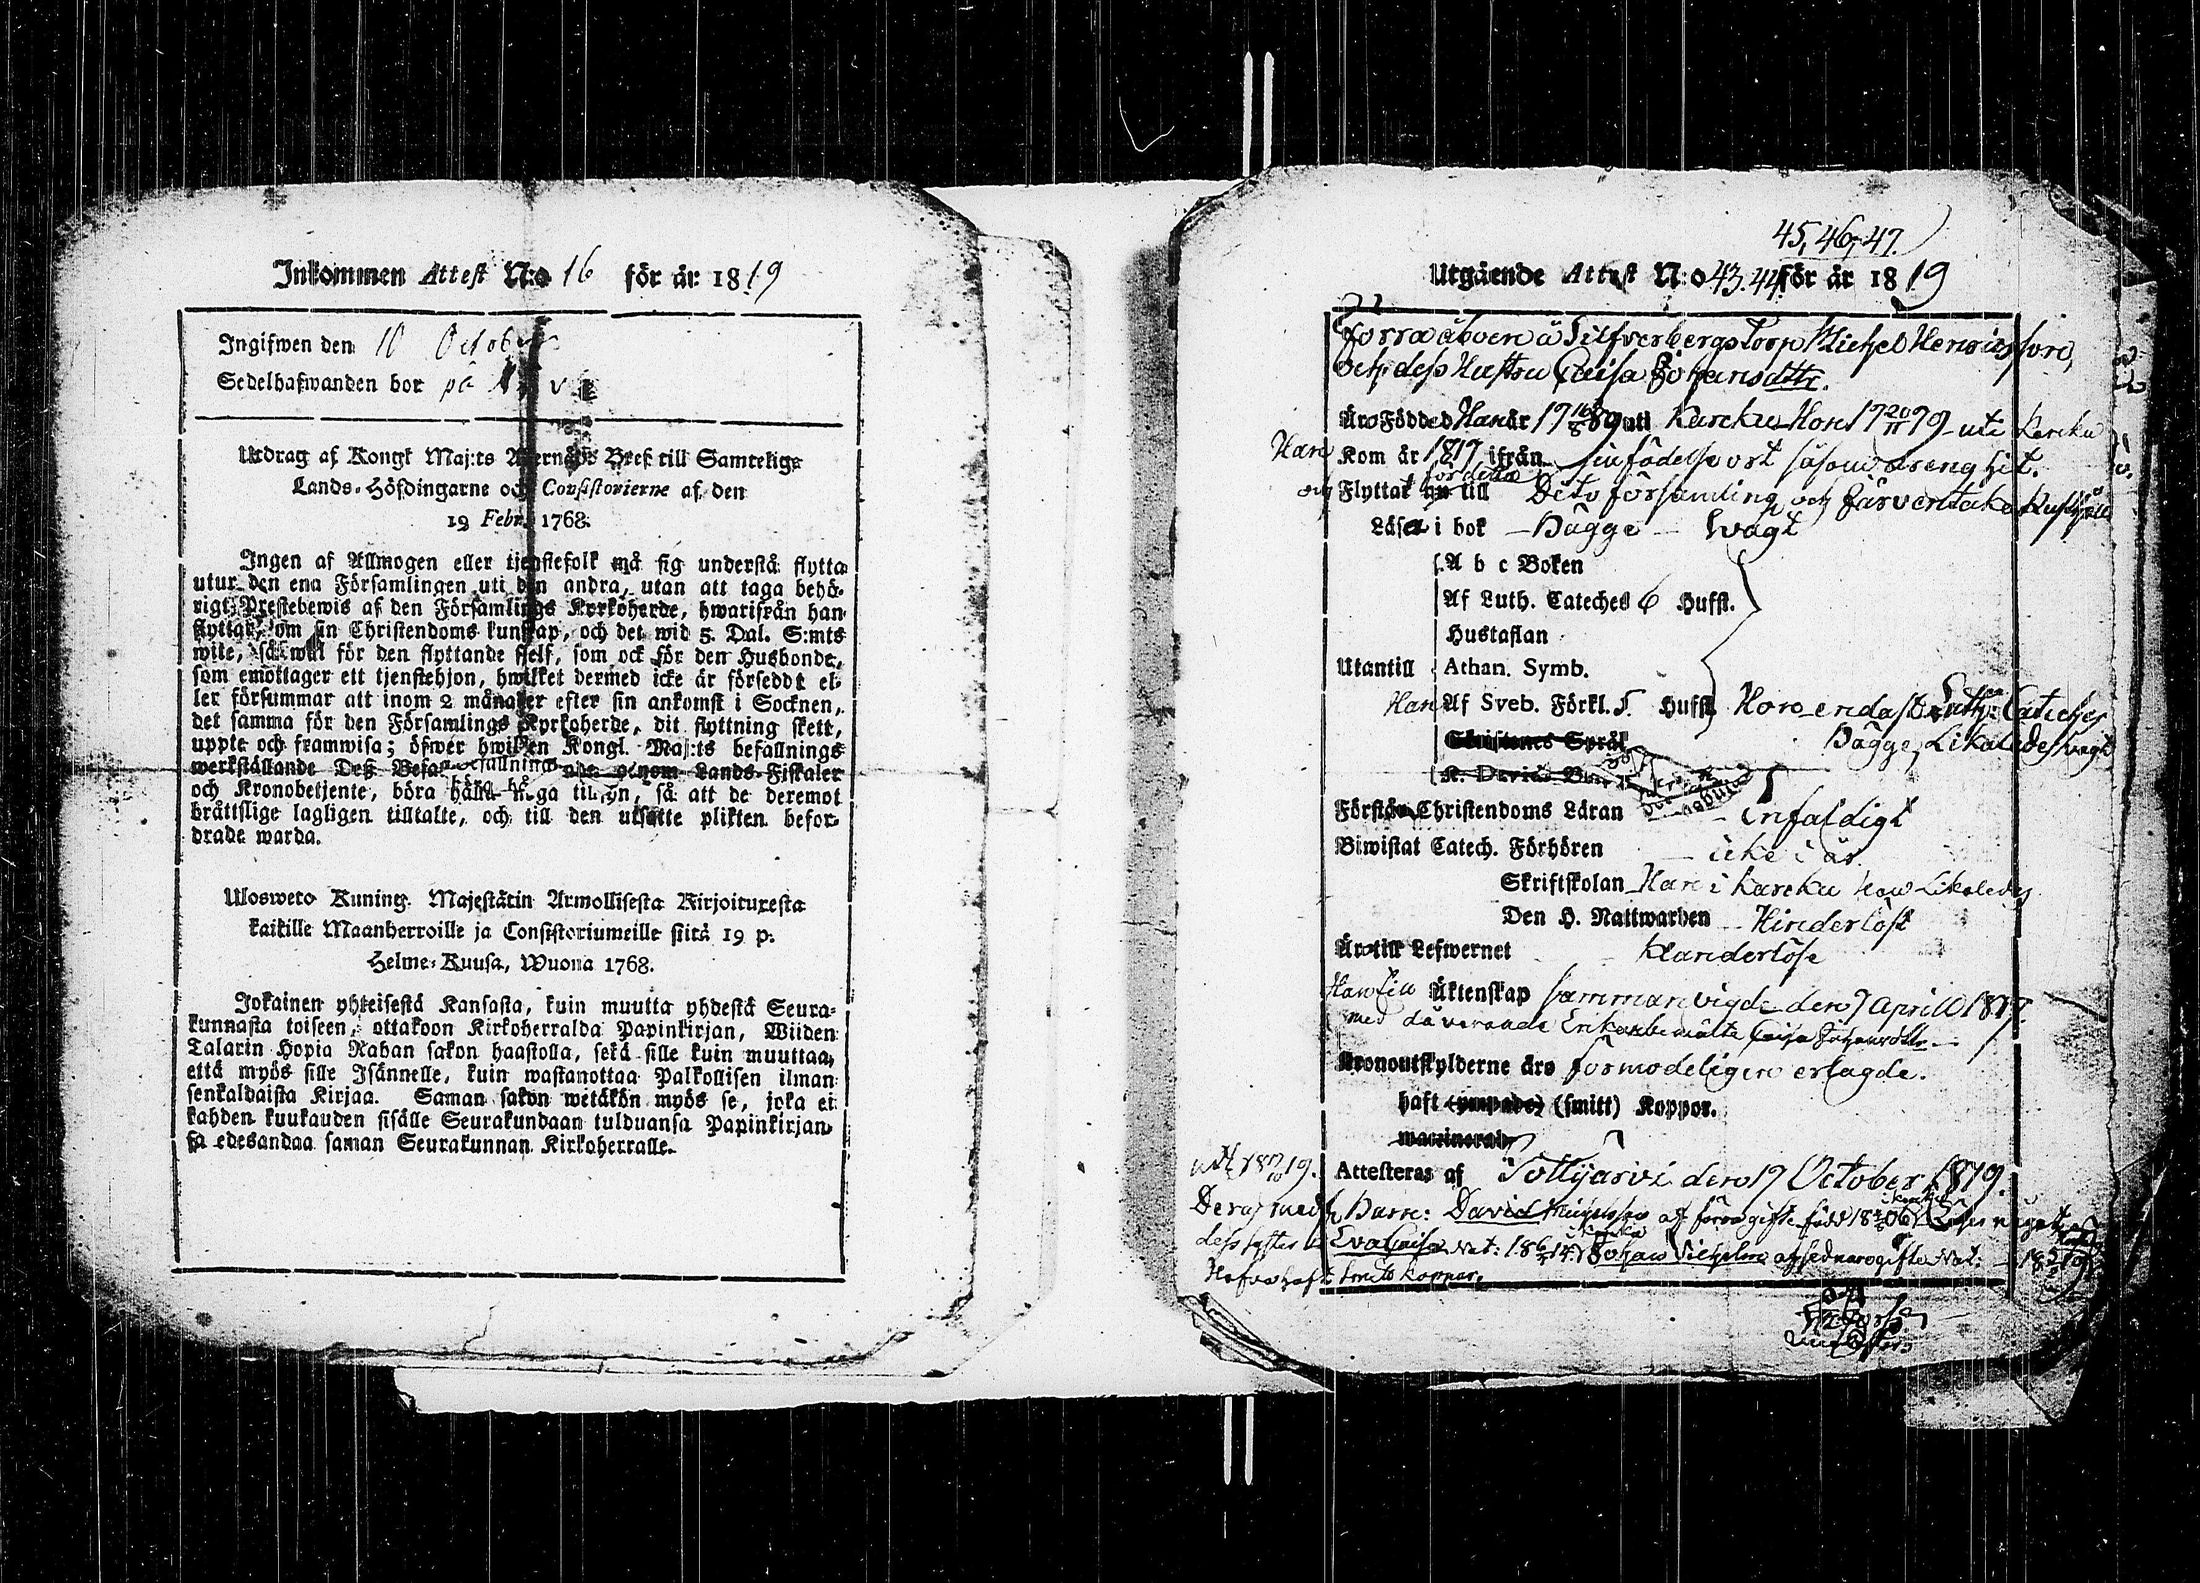 Inkommen Attest N:o 16 för år 1819
Ingifwen den 10 October
Sedelhafwanden bor på
Utdrag af Kongl Maj:ts Allernåd: Bref till Samtelige
Lands-Höfdingarne och Consistorierne af den
19 Febr. 1768.
Ingen af Allmogen eller tjenstefolk må sig understå flytta
utur den ena Församlingen uti den andra, utan att taga behö-
rigt Prestebewis af den Församlings Kyrkoherde, hwarifrån han
flyttat, om sin Christendoms kunskap, och det wid 5. Dal. S:mts
wite, så wäl för den flyttande sjelf, som ock för den Husbonde,
som emottager ett tjenstehjon, hwilket dermed icke är försedde el-
ler försummar att inom 2 månader efter sin ankomst i Socknen,
det samma för den Församlings Kyrkoherde, dit flyttning skett,
uppte och framwisa; öfwer hwilken Kongl. Maj:ts befallnings
werkställande Deß genom Lands-Fiskaler
och Kronobetjente, böra hålla noga tilsyn, så att de deremot
bråttslige lagligen tilltalte, och till den utsatte plikten befor-
drade warda.
Ulosweto Kuning. Majestätin Armollisesta Kirjoituxesta
kaikille Maanherroille ja Consistoriumeille siitä 19 p:
Helme-Kuusa, Wuona 1768.
Jokainen yhteisestä Kansasta, kuin muutta yhdestä Seura-
kunnasta toiseen, ottakoon Kirkoherralda Papinkirjan, Wiiden
Talarin Hopia Rahan sakon haastolla, sekä sille kuin muuttaa,
että myös sille Isännelle, kuin wastanottaa Palkollisen ilman
senkaldaista Kirjaa. Saman sakon wetäkön myös se, joka ei
kahden kuukauden sisälle Seurakundaan tulduansa Papinkirjan-
sa edesandaa saman Seurakunnan Kirkoherralle.
45, 46, 47.
Utgående Attest N:o 43. 44. för år 1819
förra åboen å Silfverbergs Torp Michel Henricsson,
och dess Hustru Caisa Johansdttr.
Äro Födde Han år 17 16/8 89 uti Karcku Hon 17 20/11 79 uti Karcku
Han Kom år 1817 ifrån sin födelse ort såsom dreng hit.
och Flyttat till Dito församling och Järventaka
Läsa i bok Bägge wagt
A b c Boken
Af Luth. Cateches 6 Hufst.
Hustaflan
Utantill Athan. Symb.
Han Af Sveb. Förkl. 5. Hufst Hon endast Luth. Cateches
Skriftenes Språk Bägge Likaledes wagt
K. Davids
Förstå Christendoms Läran enfaldigt
Biwistat Catech. Förhören icke i år
Skriftskolan Han i Karcku hon Likaledes
Den H. Nattwarden Hinderlöst
Äro till Lefwernet klanderlöse
Äktenskap samman vigde den 7 April 1817
med dåvarande Enkan bemälte Caisa Johansdttr
Kronoutskylderne äro förmodeligen erlagde.
haft (ympade) (smitt) Koppor.
waccinerad
Attesteras af Tottijärvi den 17 October 1819.
Deras medh Barn: David Michelsson af förra gifte född
dess syster Eva Caisa Nat: Johan Vilhelm af sednare gifte Nat:
Hafva haft smitt koppor.